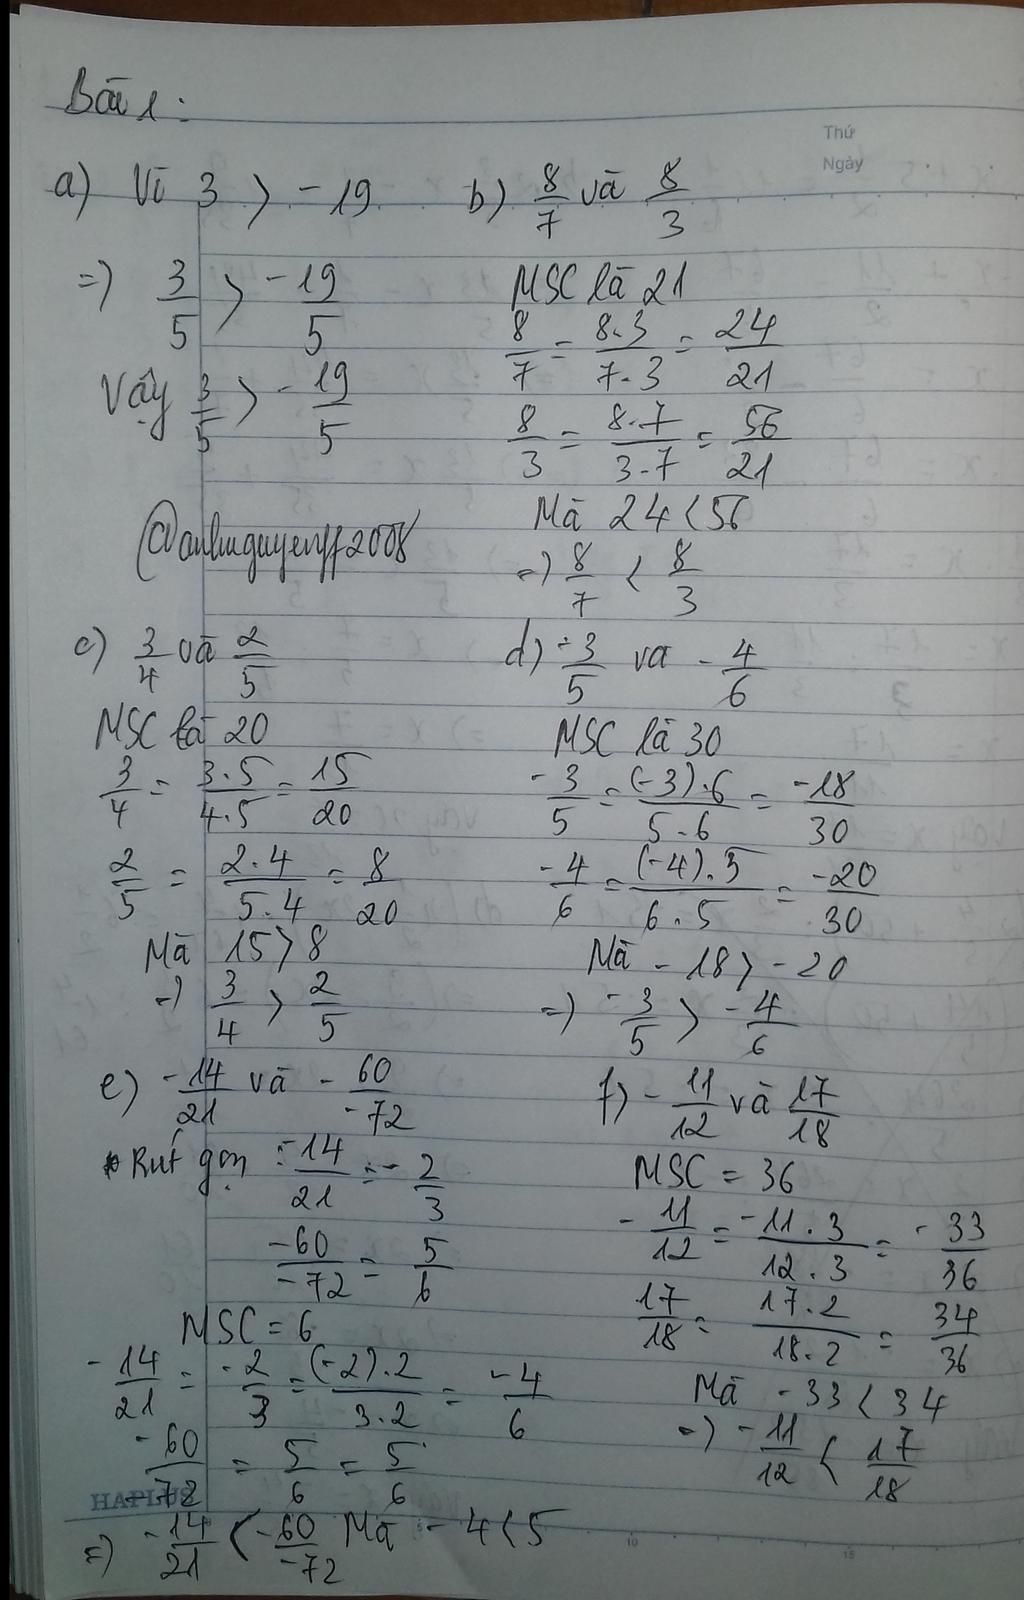 Thứ
Ngày
Bài 1:
a) Vì 3 > -19
=) 3/5 > -19/5
Vậy 3/5 > -19/5
b) 8/7 và 8/3
MSC là 21
8/7 = 8.3/7.3 = 24/21
8/3 = 8.7/3.7 = 56/21
Mà 24 < 56
=) 8/7 < 8/3
c) 3/4 và 2/5
MSC là 20
3/4 = 3.5/4.5 = 15/20
2/5 = 2.4/5.4 = 8/20
Mà 15 > 8
=) 3/4 > 2/5
d) -3/5 va -4/6
MSC là 30
-3/5 = (-3).6/5.6 = -18/30
-4/6 = (-4).5/6.5 = -20/30
Mà -18 > -20
=) -3/5 > -4/6
e) -14/21 và -60/-72
Rút gọn : -14/21 = -2/3
-60/-72 = 5/6
MSC = 6
-14/21 = -2/3 = (-2).2/3.2 = -4/6
-60/-72 = 5/6 = 5/6
=) -14/21 < -60/-72 Mà -4 < 5
f) -11/12 và 17/18
MSC = 36
-11/12 = -11.3/12.3 = -33/36
17/18 = 17.2/18.2 = 34/36
Mà -33 < 34
=) -11/12 < 17/18
HAPLUS
10
15